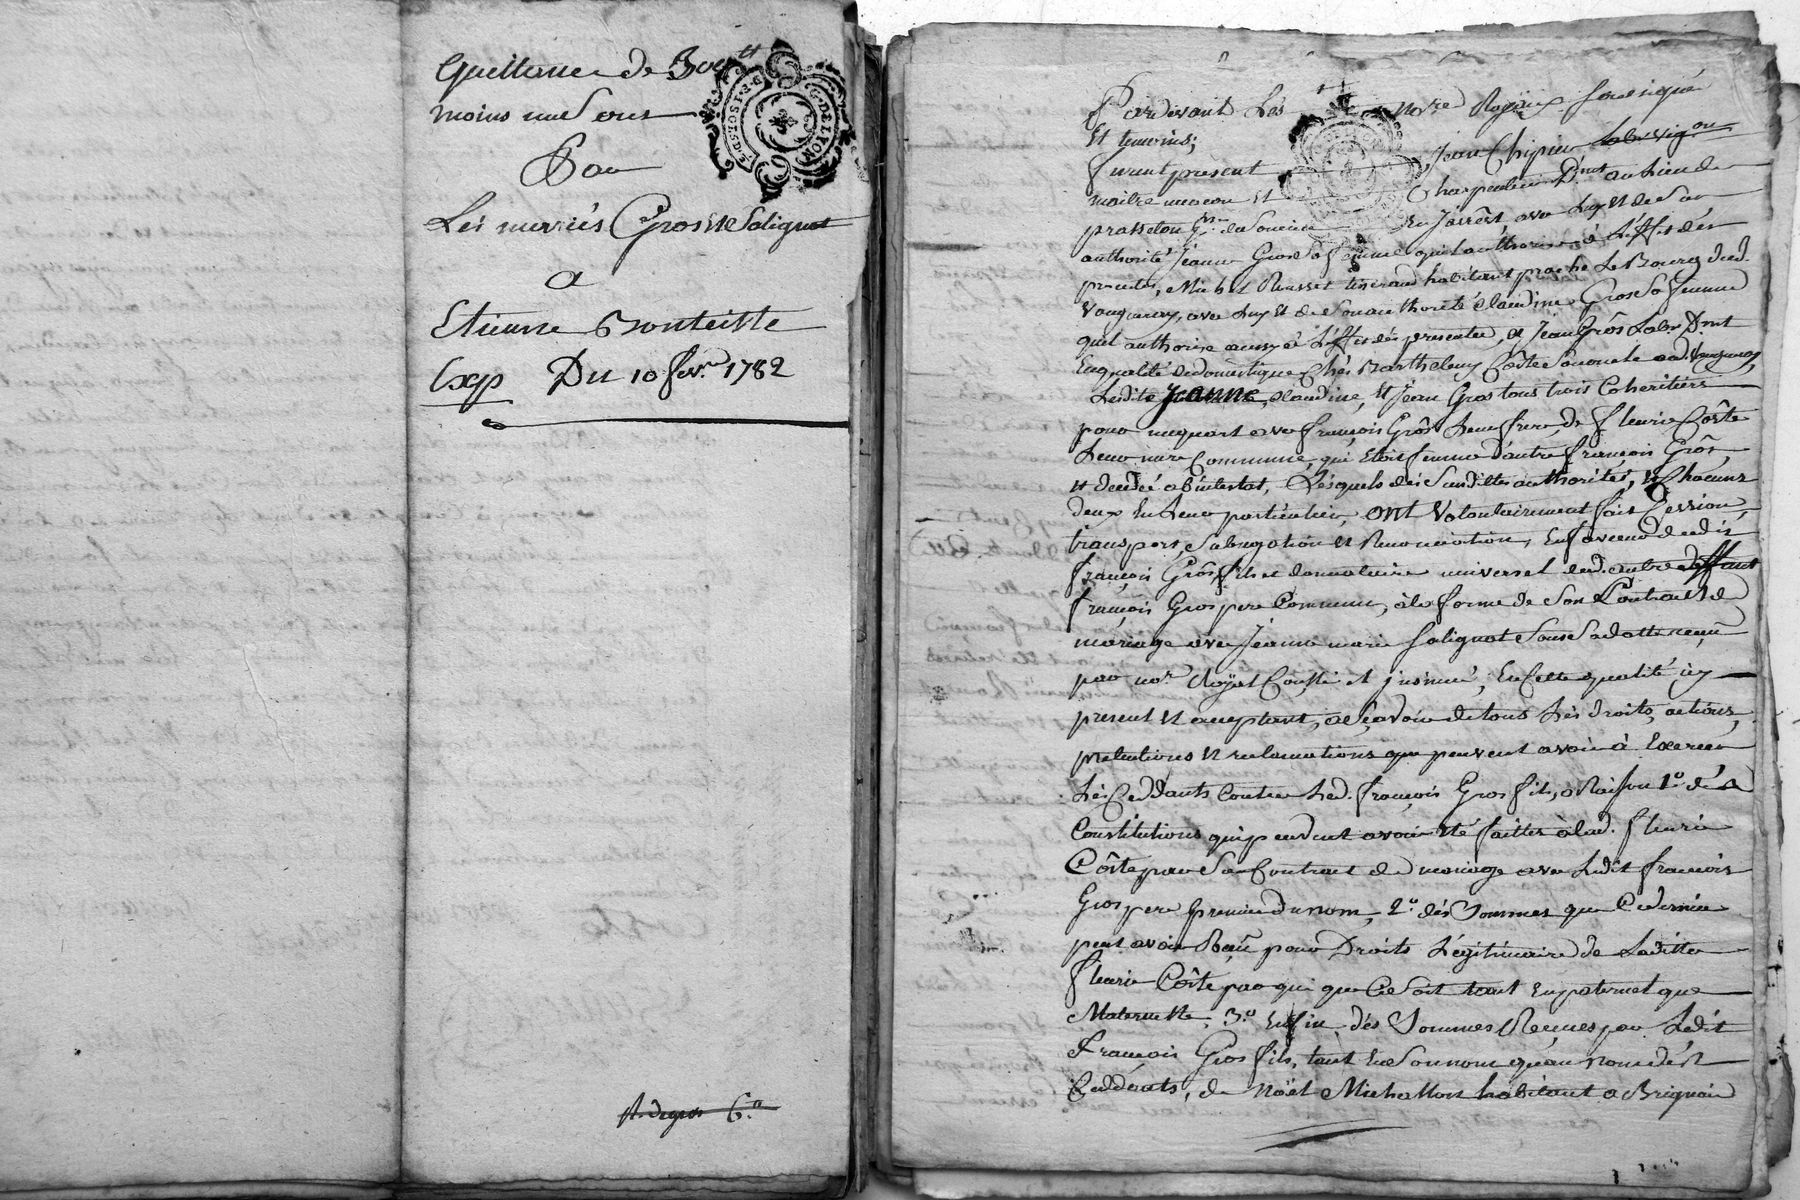 Quittance de
moins une sous
Par
Les mariés Gros et Solignat
a
Etienne Bonteille
Exp Du 10 fevr. 1782
G. DE LYON
2 SOLS
Pardevant Les no.re Royaux soussignés
Et temoins;
furent présent Jean Chipier
maitre macon et Charpentier D.mt au Lieu de
en Jarrêst avec Luy et de Son
authorité Jeanne Gros Sa femme qu'il authorise a L'effet des
presentes, Michel tisserand habitant proche Le Bourg dud.
Vaugneray, avec Luy et de Son authorité Claudine Gros Sa femme
quil authorise aussy à L'effet des presentes, et Jean Grôs Lab.r D.mt
En qualité de domestique Chés Barthelemy Côste
Lesdits Jeanne, Claudine, Et Jean Gros tous trois Coheritiers
pour un quart avec françois Grôs Leur frere, de fleurie Côste
Leur mere Commune, qui Etoit femme d'autre françois Grôs,
et decedée abintestat, Lesquels des Susdittes authorités, et Chacuns
deux En Leur particulier, ONt Volontairement fait Cession,
transport, Subrogation et Renonciation, En faveur dudit
françois Grôs fils et donnataire universel dud. autre deffunt
françois Gros pere Commun, à la forme de Son Contract de
mariage avec Jeanne marie Solignat Sousse reçu
par no.re Royal et insinué, En Cette qualité icy
present et acceptant, a Sçavoir de tous Les droits, actions,
pretentions et reclamations que peuvent avoir à Exercer
Les Ceddants Contre Led. françois Gros fils, à Raison 1.o des
Constitutions qui peuvent avoir Eté faittes à lad. fleurie
Côste par Son Contract de mariage avec Ledit françois
Gros pere premier du nom, 2.o dés Sommes que Ce dernier
peut avoir Reçu pour Droits Légitimaire de Laditte
fleurie Côste par qui que Ce Soit tant En paternel que
Maternelle, 3.o Enfin dés Sommes Reçues par Ledit
François Gros fils, tant En Son nom qu'au nom dés
Ceddants, de Noël Michallon habitant a Brignais